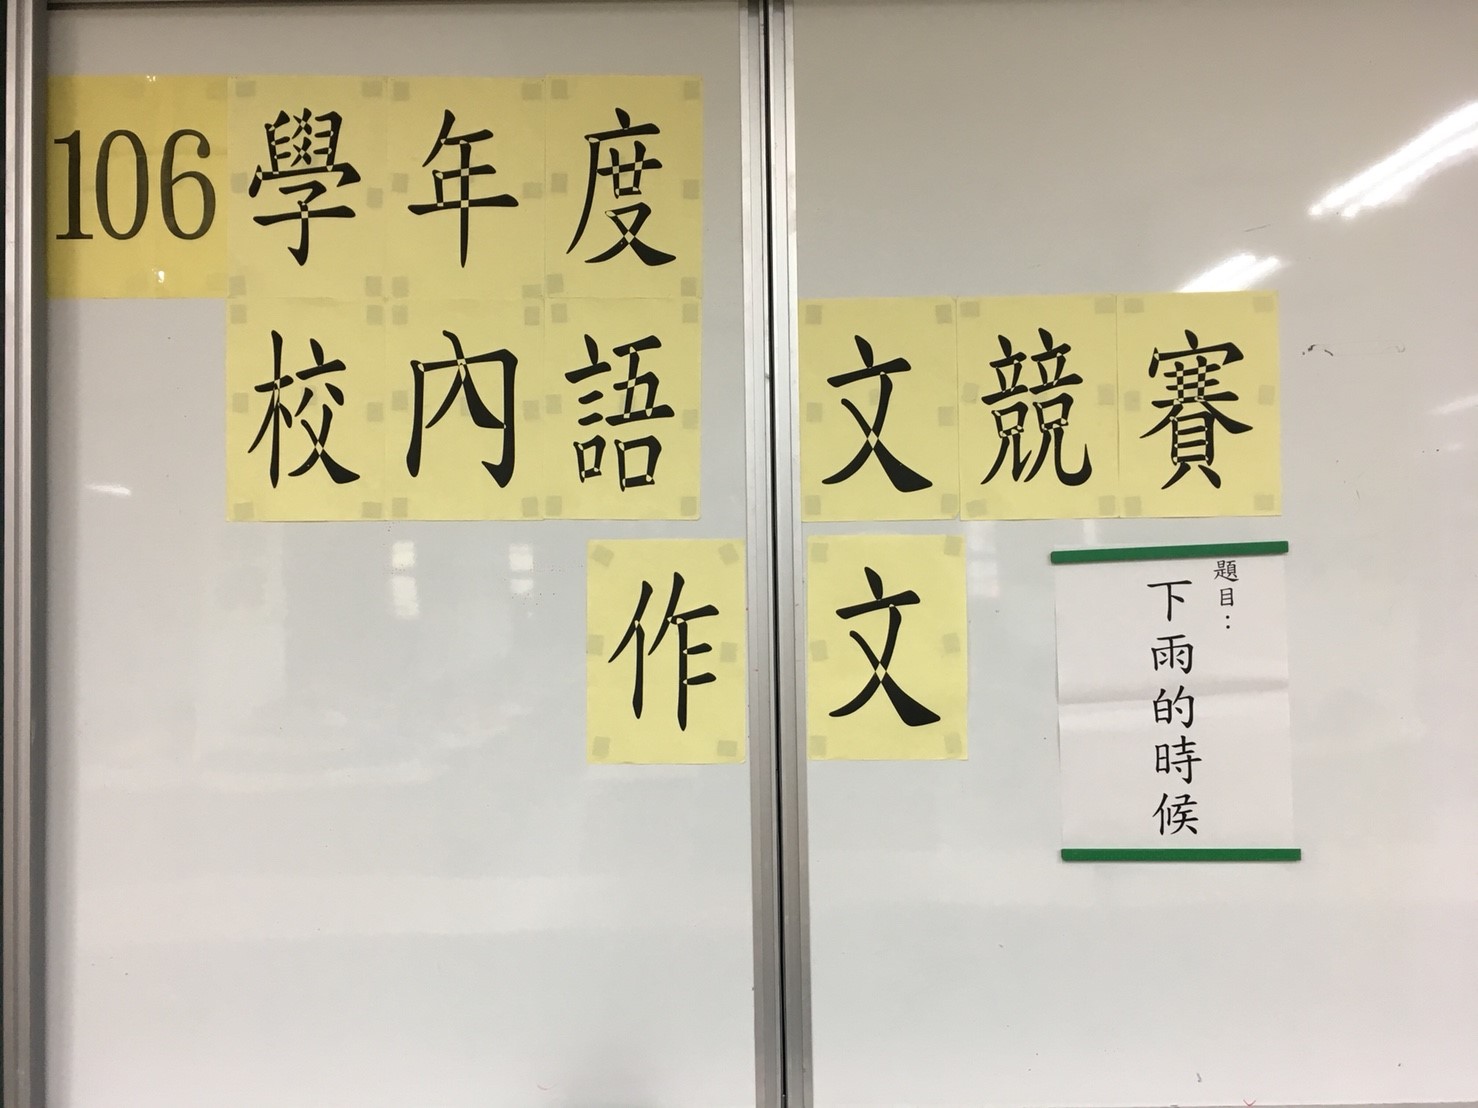 106學年度
校內語文競賽
作文
題目：
下雨的時候